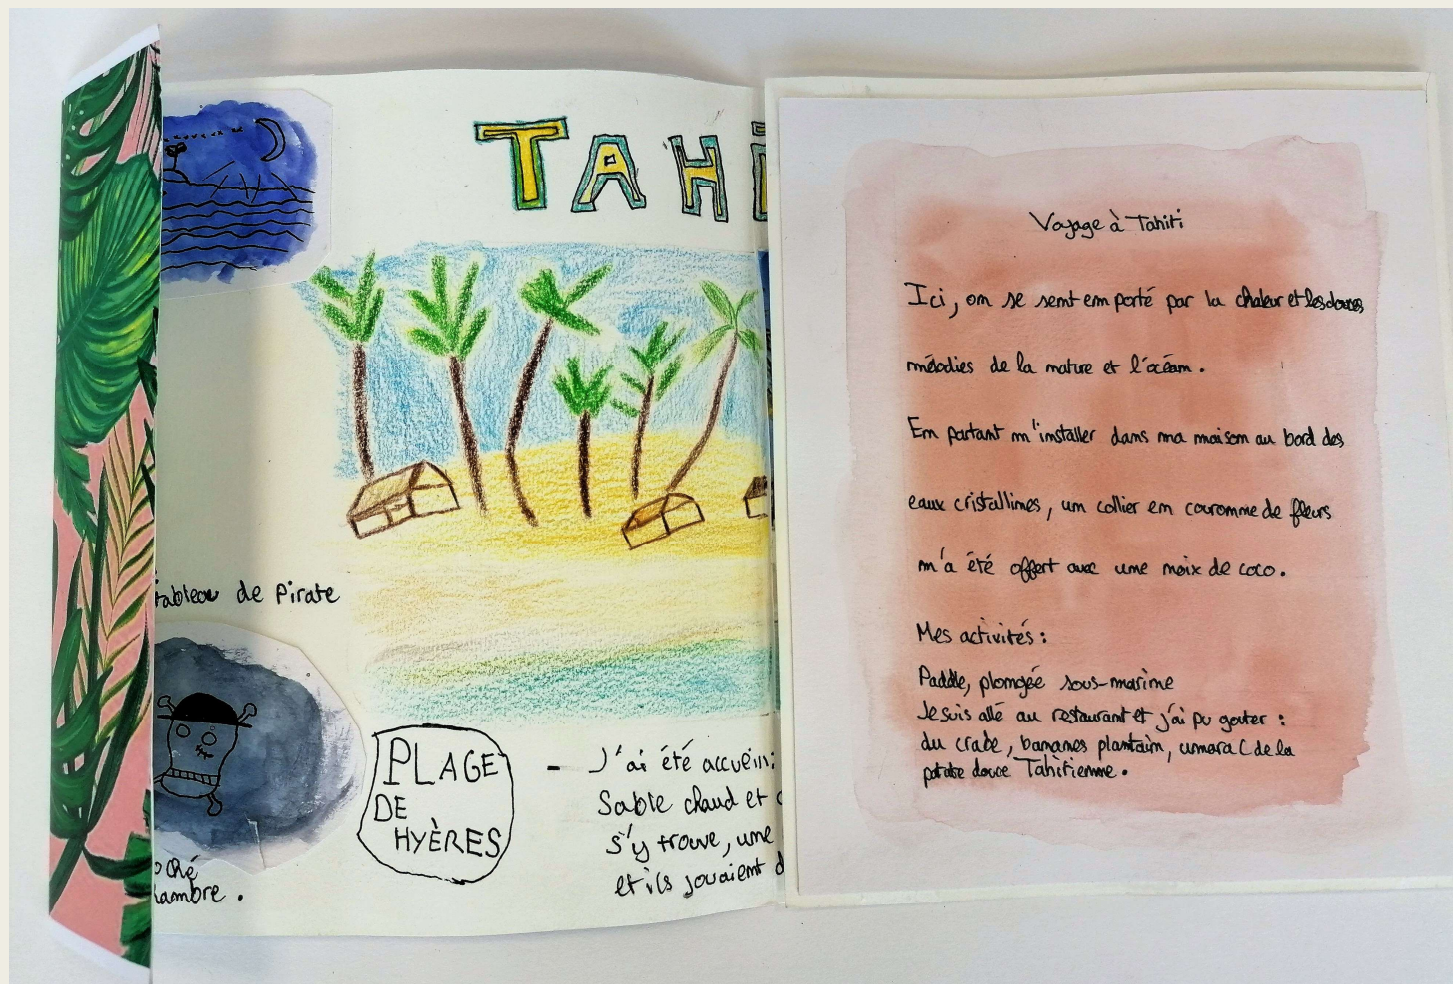 TAHi
tableau de Pirate
ché
hambre.
PLAGE
DE
HYÈRES
- J'ai été accueilli
Sable chaud et
s'y trouve, une
et ils jouaient d
Voyage à Tahiti
Ici, on se sent emporté par la chaleur et les douces
mélodies de la nature et l'océan.
En partant m'installer dans ma maison au bord des
eaux cristallines, un collier en couronne de fleurs
m'a été offert avec une noix de coco.
Mes activités :
Paddle, plongée sous-marine
Je suis allé au restaurant et j'ai pu gouter :
du crabe, bananes plantain, umara (de la
patate douce Tahitienne.